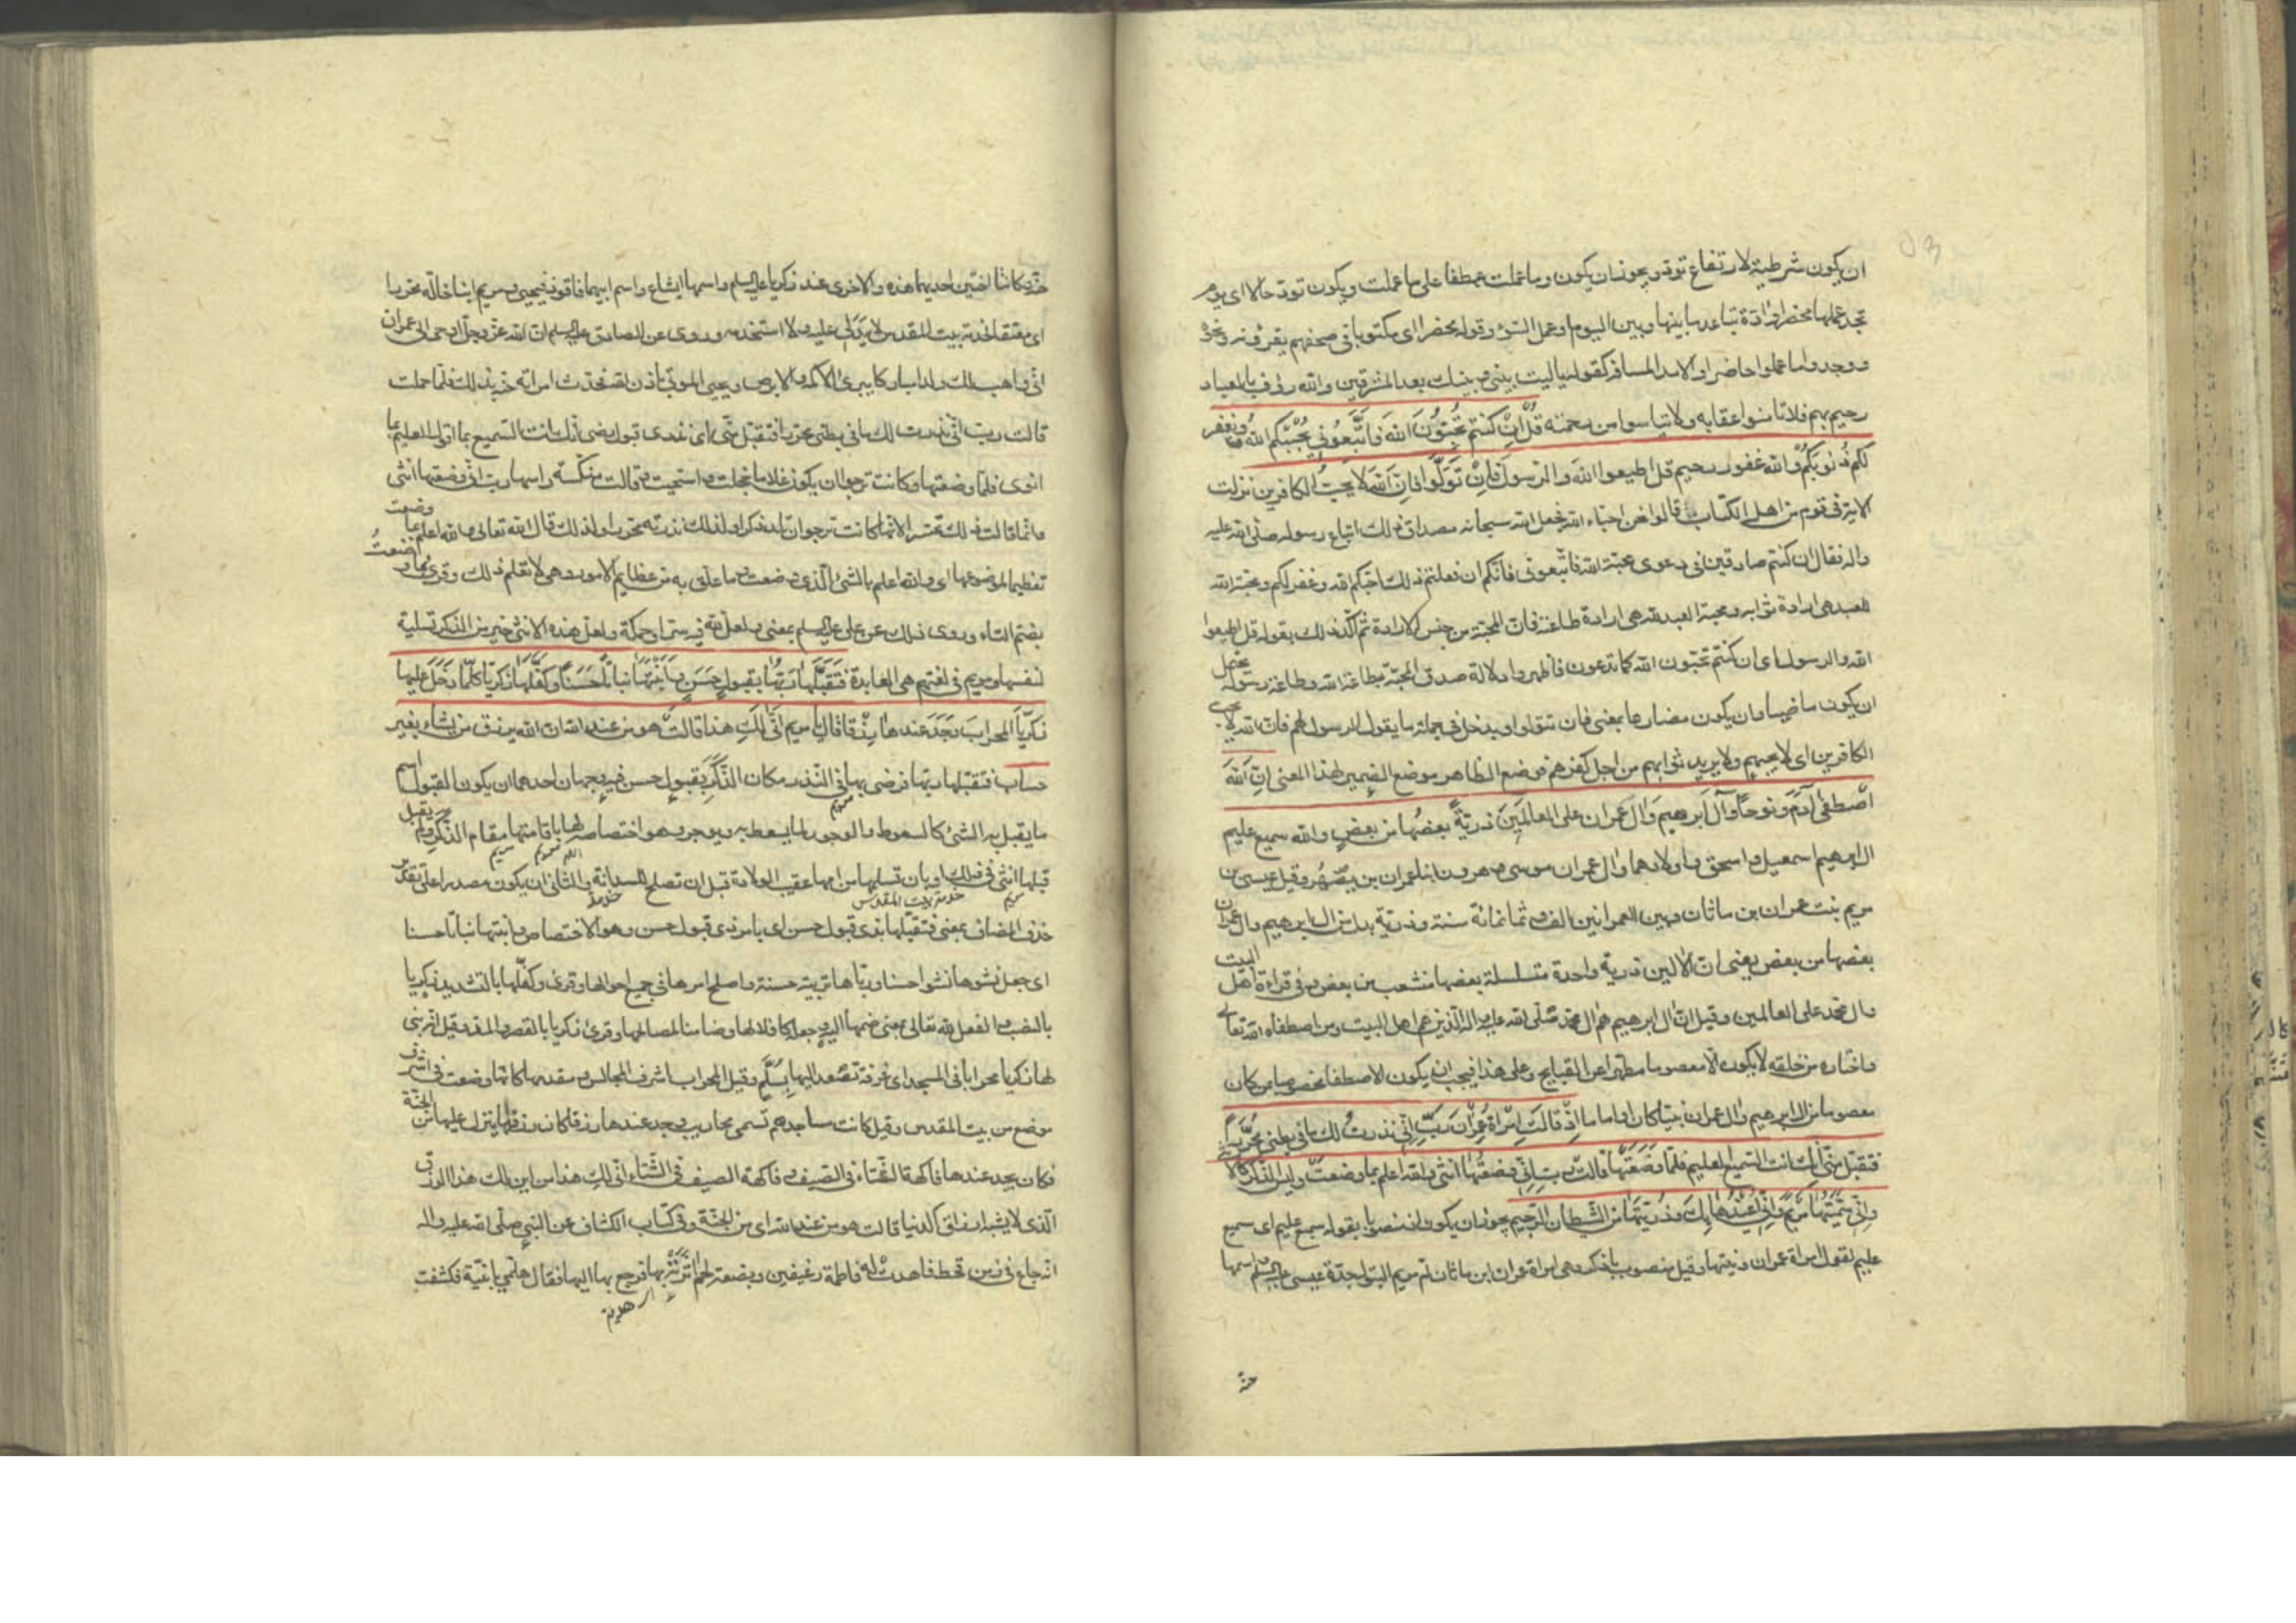 ان يكون شرطية لارتفاع تود ويجوز ان يكون وما عملت عطفا على ما عملت ويكون تود حالا اى يوم
تجد عملها محضرا وادة تباعد ما بينها وبين اليوم او عمل السوء وقوله محضرا اى مكتوبا في صحفهم يقرؤنه ونحوه
ووجدوا ما عملوا حاضرا والامد المسافة كقوله ياليت بيني وبينك بعد المشرقين والله رؤف بالعباد
رحيم بهم فلا تامنوا عقابه ولا تياسوا من رحمته قُلْ اِنْ كنتم تُحِبُّونَ الله فَاتَّبَعُوني يُحْبِبْكم الله ويغفر
لكم ذُنُوبَكُمْ والله غفور رحيم قل اطيعوا الله والرسول فَاِنْ تَوَلَّوْا فاِنَّ الله لا يحبُّ الكافرين نزلت
الاية في قوم من اهل الكتاب قالوا نحن احباء الله فجعل الله سبحانه مصداق ذلك اتباع رسوله صلى الله عليه
واله فقال ان كنتم صادقين في دعوى محبة الله فاتبعوني فانكم ان فعلتم ذلك احبكم الله وغفر لكم ومحبة الله
للعبد هى ارادة ثوابه ومحبة العبد لله هى ارادة طاعته فان المحبة من جنس الارادة ثم اكد ذلك بقوله قل اطيعوا
الله والرسول اى ان كنتم تحبون الله كما تدعون فاظهروا دلالة صدق المحبة بطاعة الله وطاعة رسوله يحتمل
ان يكون ماضيا وان يكون مضارعا بمعنى فان تتولوا ويدخل في جملة ما يقول الرسول لهم فان الله لا يحب
الكافرين اى لا يحبهم ولا يريد ثوابهم من اجل كفرهم فوضع الظاهر موضع الضمير لهذا المعنى اِنَّ اللهَ
اصْطَفىٰ آدَمَ ونوحًا وآل ابرهيم وَال عمران على العالَمينَ ذريةً بعضُها من بعضٍ والله سميع عليم
ال ابرهيم اسمعيل واسحق واولادهما وال عمران موسى وهرون ابنا عمران بن يصهر وقيل عيسى بن
مريم بنت عمران بن ماثان وبين العمرانين الف وثمانمائة سنة وذرية بدل من ال ابرهيم وال عمران
بعضها من بعض يعني ان الالين ذرية واحدة متسلسلة بعضها متشعب من بعض وفي قراءة اهل البيت
وال محمد على العالمين وقيل ان ال ابرهيم هم ال محمد صلى الله عليه واله الذين هم اهل البيت ومن اصطفاه الله تعالى
واختاره من خلقه لا يكون الا معصوما مطهرا عن القبايح وعلى هذا فيجب ان يكون الاصطفا مخصوصا بمن كان
معصوما من ال ابرهيم وال عمران نبيا كان او اماما اِذْ قالَتِ امْرَاَةُ عِمْرٰنَ رَبِّ اِنّي نذرتُ لك ما في بطني مُحَرَّرًا
فتقبّل منّي انك انت السميع العليم فلمّا وَضَعَتْها قالَتْ رب اِنّي وضعتُها انثى والله اعلم بما وضعت وليس الذكر كالا
وانّي سَمَّيْتُها مَريمَ وَاِنّي اُعيذُها بِكَ وذُرِّيَتَها من الشيطان الرجيم يجوز ان يكون اذ منصوبا بقوله سميع عليم اى سميع
عليم لقول امراة عمران ونيتها وقيل منصوب باذكر وهى امراة عمران ابن ماثان ام مريم البتول جدة عيسى اسمها
حنة
حنة وكانتا اختين احديهما هذه والاخرى عند زكريا واسمها ايشاع واسم ابيهما فاقوذ فيحيى ومريم ابنا خالة محررا
اى معتقا لخدمة بيت المقدس لا يد لى عليه ولا استخدمه وروى عن الصادق ان الله عز وجل اوحى الى عمران
انى واهب لك ولدا مباركا يبرئ الاكمه والابرص ويحيي الموتى باذن الله فحدث امراته حنة بذلك فلما حملت
قالت رب انّي نذرت لك ما في بطني محررا فتقبل منّي اى نذرى قبول رضى انك انت السميع بما اقول العليم بما
انوى فلما وضعتها وكانت ترجوا ان يكون غلاما خجلت واستحيت وقالت منكسة راسها رب انى وضعتها انثى
وانما قالت ذلك تحسرا لانها كانت ترجوا ان تلد ذكرا ولذلك نذرته محررا ولذلك قال الله تعالى والله اعلم بما وضعت
تعظيما لموضوعها اى والله اعلم بالشئ الذي وضعت وما علق به من عظايم الامور وهى لا تعلم ذلك وقرئ بما وضعتُ
بضم التاء وروى ذلك عن على بمعنى ولعل لله فيه سرا وحكمة ولعل هذه الانثى خير من الذكر تسلية
لنفسها ومريم في لغتهم هى العابدة فتقبَّلها رَبُّها بقبولٍ حَسَنٍ وَاَنبَتَها نباتًا حَسَنًا وَكَفَّلَها زكريّا كلّما دَخَلَ عليها
زكريّا المحرابَ وَجَدَ عندها رِزْقًا قالَ يا مريم اَنّى لَكِ هذا قالَتْ هو من عند الله ان الله يرزق من يشاء بغير
حساب فتقبلها ربها فرضى بها في النذر مكان الذَّكَرِ بقبولٍ حسن فيه وجهان احدهما ان يكون القبول اسم
ما يقبل به الشئ كالسعوط والوجور لما يسعط به ويوجر وهو اختصاصه لها باقامتها مقام الذكر ولم يقبل
قبلها انثى في ذلك او بان تسلمها من امها عقيب الولادة قبل ان تصلح للسدانة والثاني ان يكون مصدرا على تقدير
مريم
خدمة بيت المقدس
حذف المضاف بمعنى فتقبلها بذى قبول حسن اى بامر ذى قبول حسن وهو الاختصاص وانبتها نباتا حسنا
اى جعل نشوها نشوا حسنا ورباها تربية حسنة واصلح امرها في جميع احوالها وقرئ وكفّلها بالتشديد زكريا
بالنصب والفعل لله تعالى بمعنى ضمها اليه وجعله كافلا لها وضامنا لمصالحها وقرئ زكريا بالقصر والمد وقيل انه بنى
لها زكريا محرابا في المسجد اى غرفة تصعد اليها بِسُلَّمٍ وقيل المحراب اشرف المجالس ومقدمها كانها وضعت في اشرف
موضع من بيت المقدس وقيل كانت مساجدهم تسمى محاريب وجد عندها رزقا كان رزقها ينزل عليها من الجنة
فكان يجد عندها فاكهة الشتاء في الصيف وفاكهة الصيف في الشتاء انى لكِ هذا من اين لك هذا الرزق
الذى لا يشبه ارزاق الدنيا قالت هو من عند الله اى من الجنة وفي كتاب الكشاف عن النبي صلى الله عليه واله
انه جاع في زمن قحط فاهدت له فاطمة رغيفين وبضعة لحم اٰثرته بها فرجع بها اليها فقال هلمي يا بنية فكشفت